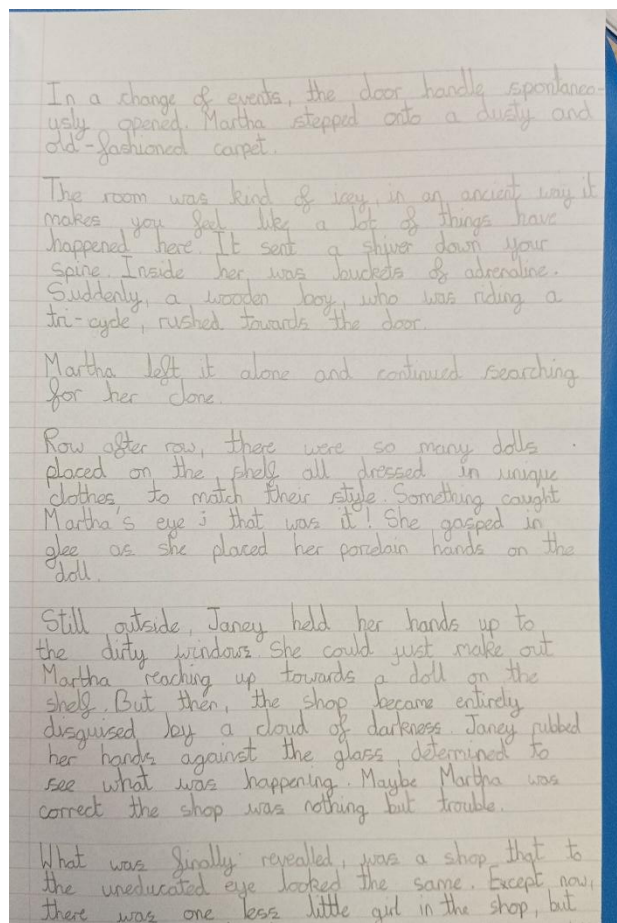 In a change of events, the door handle spontaneo-
usly opened. Martha stepped onto a dusty and
old-fashioned carpet.
The room was kind of icey, in an ancient way it
makes you feel like a lot of things have
happened here. It sent a shiver down your
spine. Inside her was buckets of adrenaline.
Suddenly, a wooden boy, who was riding a
tri-cycle, rushed towards the door.
Martha left it alone and continued searching
for her clone.
Row after row, there were so many dolls
placed on the shelf all dressed in unique
clothes, to match their style. Something caught
Martha's eye; that was it! She gasped in
glee as she placed her porcelain hands on the
doll.
Still outside, Janey held her hands up to
the dirty windows. She could just make out
Martha reaching up towards a doll on the
shelf. But then, the shop became entirely
disguised by a cloud of darkness. Janey rubbed
her hands against the glass, determined to
see what was happening. Maybe Martha was
correct the shop was nothing but trouble.
What was finally revealled, was a shop that to
the uneducated eye looked the same. Except now,
there was one less little girl in the shop, but